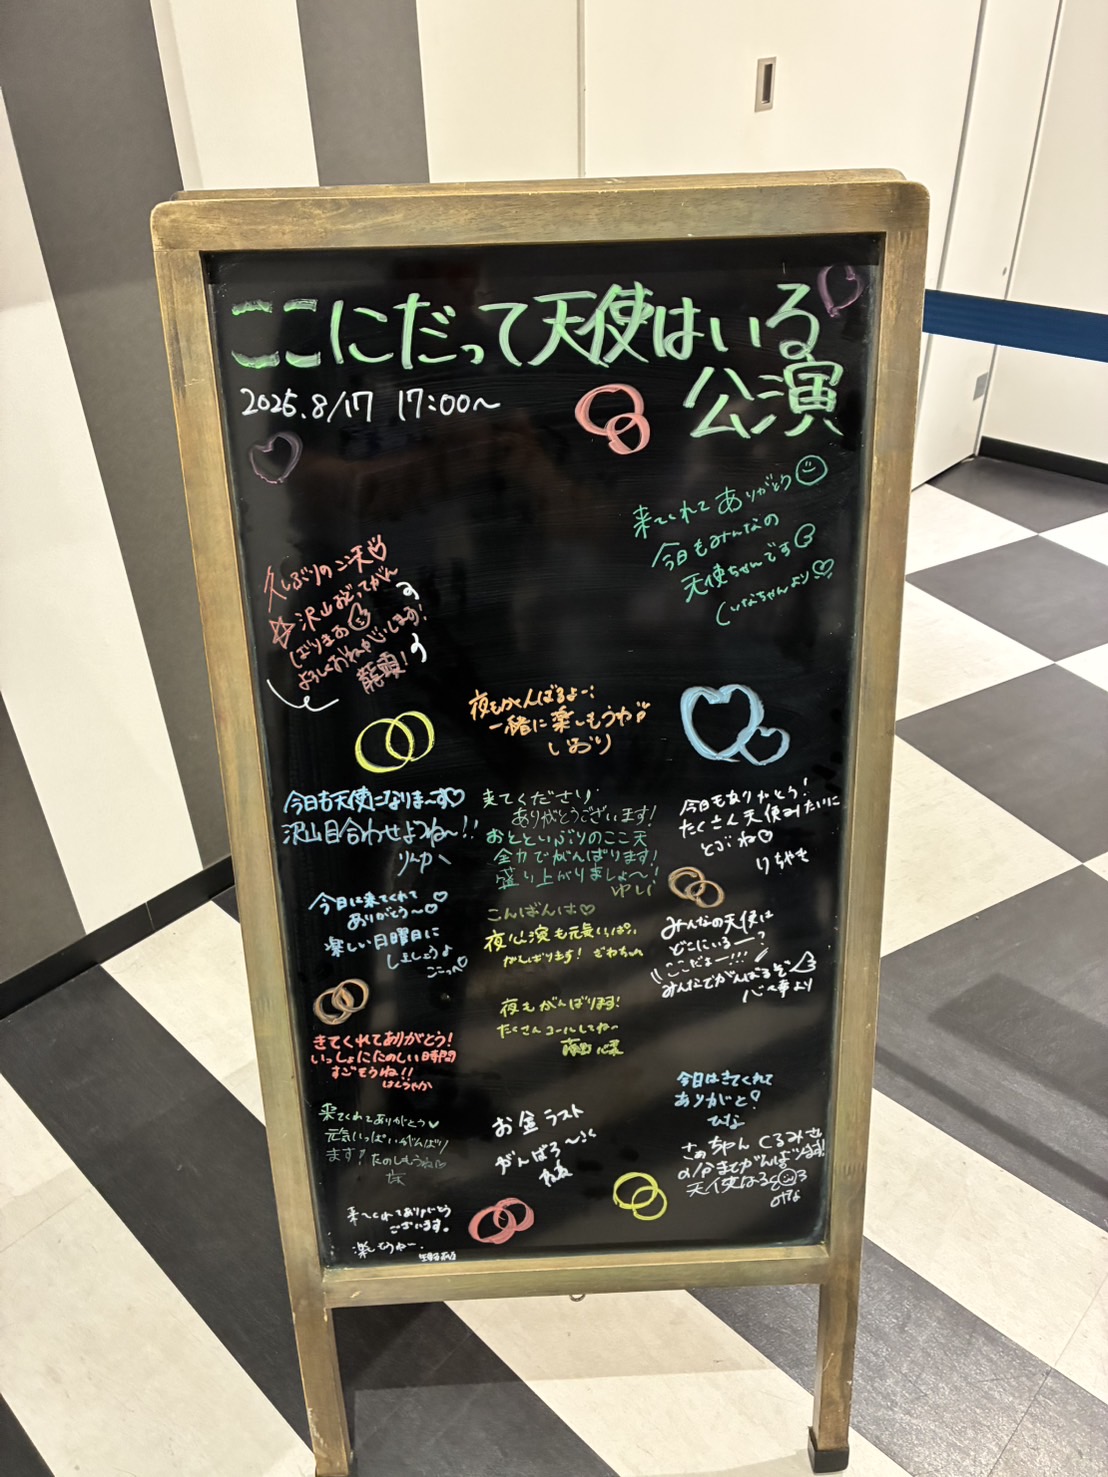 ここにだって天使はいる
公演
2025.8/17 17:00～
来てくれてありがとう
今日もみんなの
天使ちゃんです
いなちゃんより
久しぶりのここ天
沢山おどってがん
ばりまあ
よろしくおねがいします!
龍頭!
夜もがんばるよー!
一緒に楽しもうね
しおり
今日も天使になりまーす♡
沢山目合わせようね～!!
りんか
来てください
ありがとうございます!
おとといぶりのここ天
全力でがんばります!
盛り上がりましょ～!
ゆい
今日もありがとう!
たくさん天使みたいに
とぶね
りちゃそ
今日は来てくれて♡
ありがとう～♡
楽しい日曜日に
しましょうよ
こんばんは♡
夜公演も元気いっぱい
がんばります! ざわちゃん
みんなの天使は
どこにいるー?
ここだよー!!!
みんなでがんばるぞ
より
夜もがんばります!
たくさんコールしてねー
きてくれてありがとう!
いっしょにたのしい時間
すごそうね!!
はくうやか
今日はきてくれて
ありがと!
ひな
来てくれてありがとう♡
元気いっぱいがんばり
ます! たのしもうね♡
お盆ラスト
がんばろ～
さぁちゃん くるみさ
の分までがんばります!
天使なる
来てくれてありがとう
ございます。
楽しもうねー。